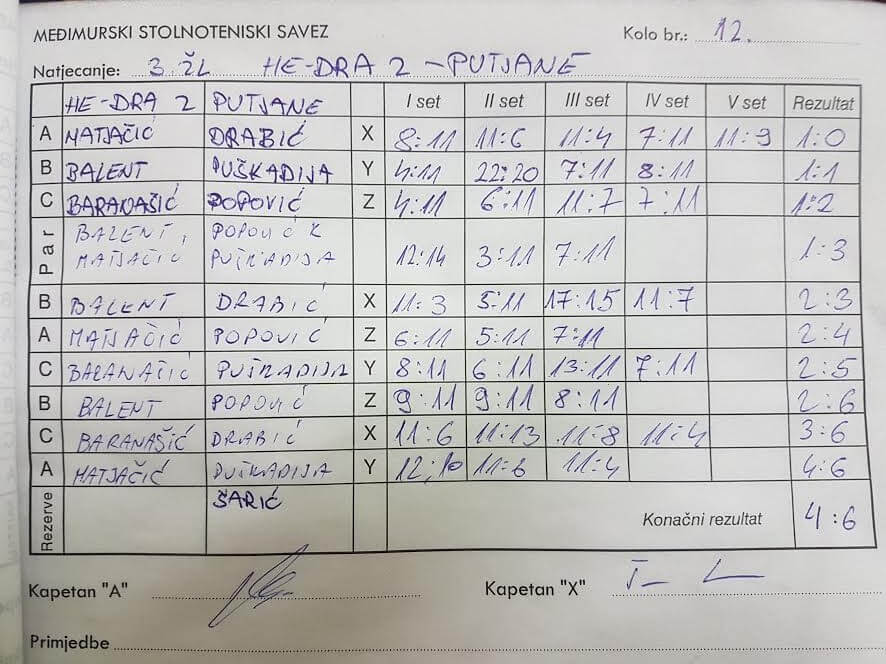 MEĐIMURSKI STOLNOTENISKI SAVEZ Kolo br.: 12.
Natjecanje: 3. ŽL HE-DRA 2 – PUTJANE
HE-DRA 2 PUTJANE I set II set III set IV set V set Rezultat
A MATJAČIĆ DRABIĆ X 8:11 11:6 11:4 7:11 11:9 1:0
B BALENT PUŠKADIJA Y 4:11 22:20 7:11 8:11 1:1
C BARANAŠIĆ POPOVIĆ Z 4:11 6:11 11:7 7:11 1:2
Par BALENT, MATJAČIĆ POPOVIĆ K PUŠKADIJA 12:14 3:11 7:11 1:3
B BALENT DRABIĆ X 11:3 5:11 17:15 11:7 2:3
A MATJAČIĆ POPOVIĆ Z 6:11 5:11 7:11 2:4
C BARANAŠIĆ PUŠKADIJA Y 8:11 6:11 13:11 7:11 2:5
B BALENT POPOVIĆ Z 9:11 9:11 8:11 2:6
C BARANAŠIĆ DRABIĆ X 11:6 11:13 11:8 11:4 3:6
A MATJAČIĆ PUŠKADIJA Y 12:10 11:6 11:4 4:6
Rezerve ŠARIĆ Konačni rezultat 4:6
Kapetan "A" Kapetan "X"
Primjedbe